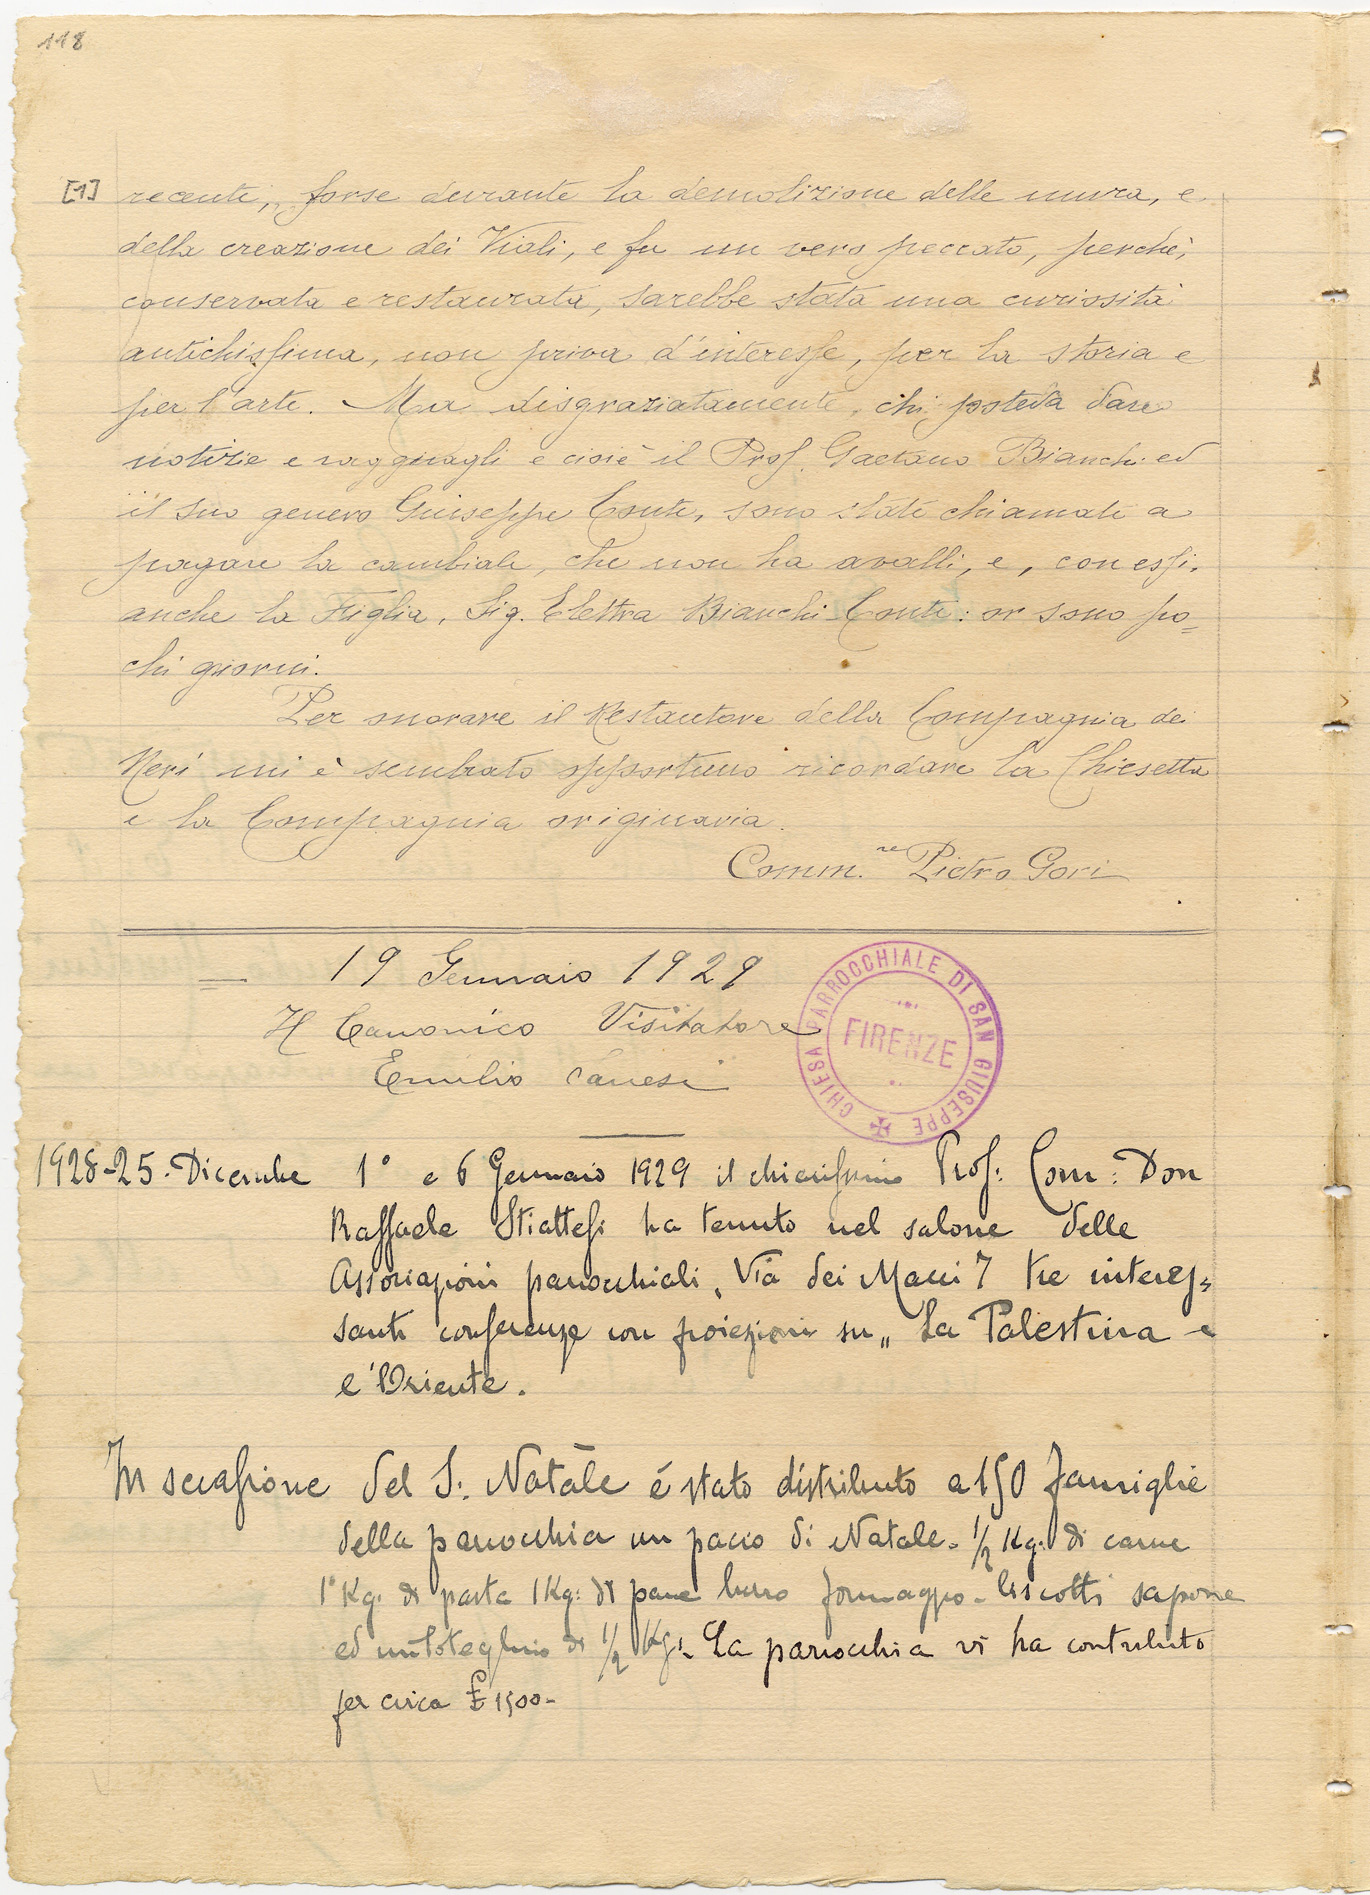 118
[1] recente, forse durante la demolizione delle mura, e
della creazione dei Viali, e fu un vero peccato, perchè,
conservata e restaurata, sarebbe stata una curiosità
antichissima, non priva d'interesse, per la storia e
per l'arte. Ma disgraziatamente, chi poteva dare
notizie e ragguagli e cioè il Prof. Gaetano Bianchi ed
il suo genero Giuseppe Conti, sono stati chiamati a
pagare la cambiale, che non ha avalli, e, con essi,
anche la Figlia, Sig. Elettra Bianchi-Conti: or sono po=
chi giorni.
Per onorare il Restauratore della Compagnia dei
Neri mi è sembrato opportuno ricordare la Chiesetta
e la Compagnia originaria.
Comm.re Pietro Gori
= 19 Gennaio 1929
Il Canonico Visitatore
Emilio
CHIESA PARROCCHIALE DI SAN GIUSEPPE
FIRENZE
1928-25. Dicembre 1° e 6 Gennaio 1929 il chiarissimo Prof: Com: Don
Raffaele Stiattesi ha tenuto nel salone delle
Associazioni parrocchiali, Via dei Macci 7 tre interes=
santi conferenze con proiezioni su „ La Palestina e
l'Oriente.
In occasione del S. Natale é stato distribuito a 150 famiglie
della parrocchia un pacco di Natale - 1/2 Kg. di carne
1° Kg. di pasta 1 Kg: di pane burro formaggio - biscotti sapone
ed un di 1/2 Kg. - La parrocchia vi ha contribuito
per circa £ 1500-